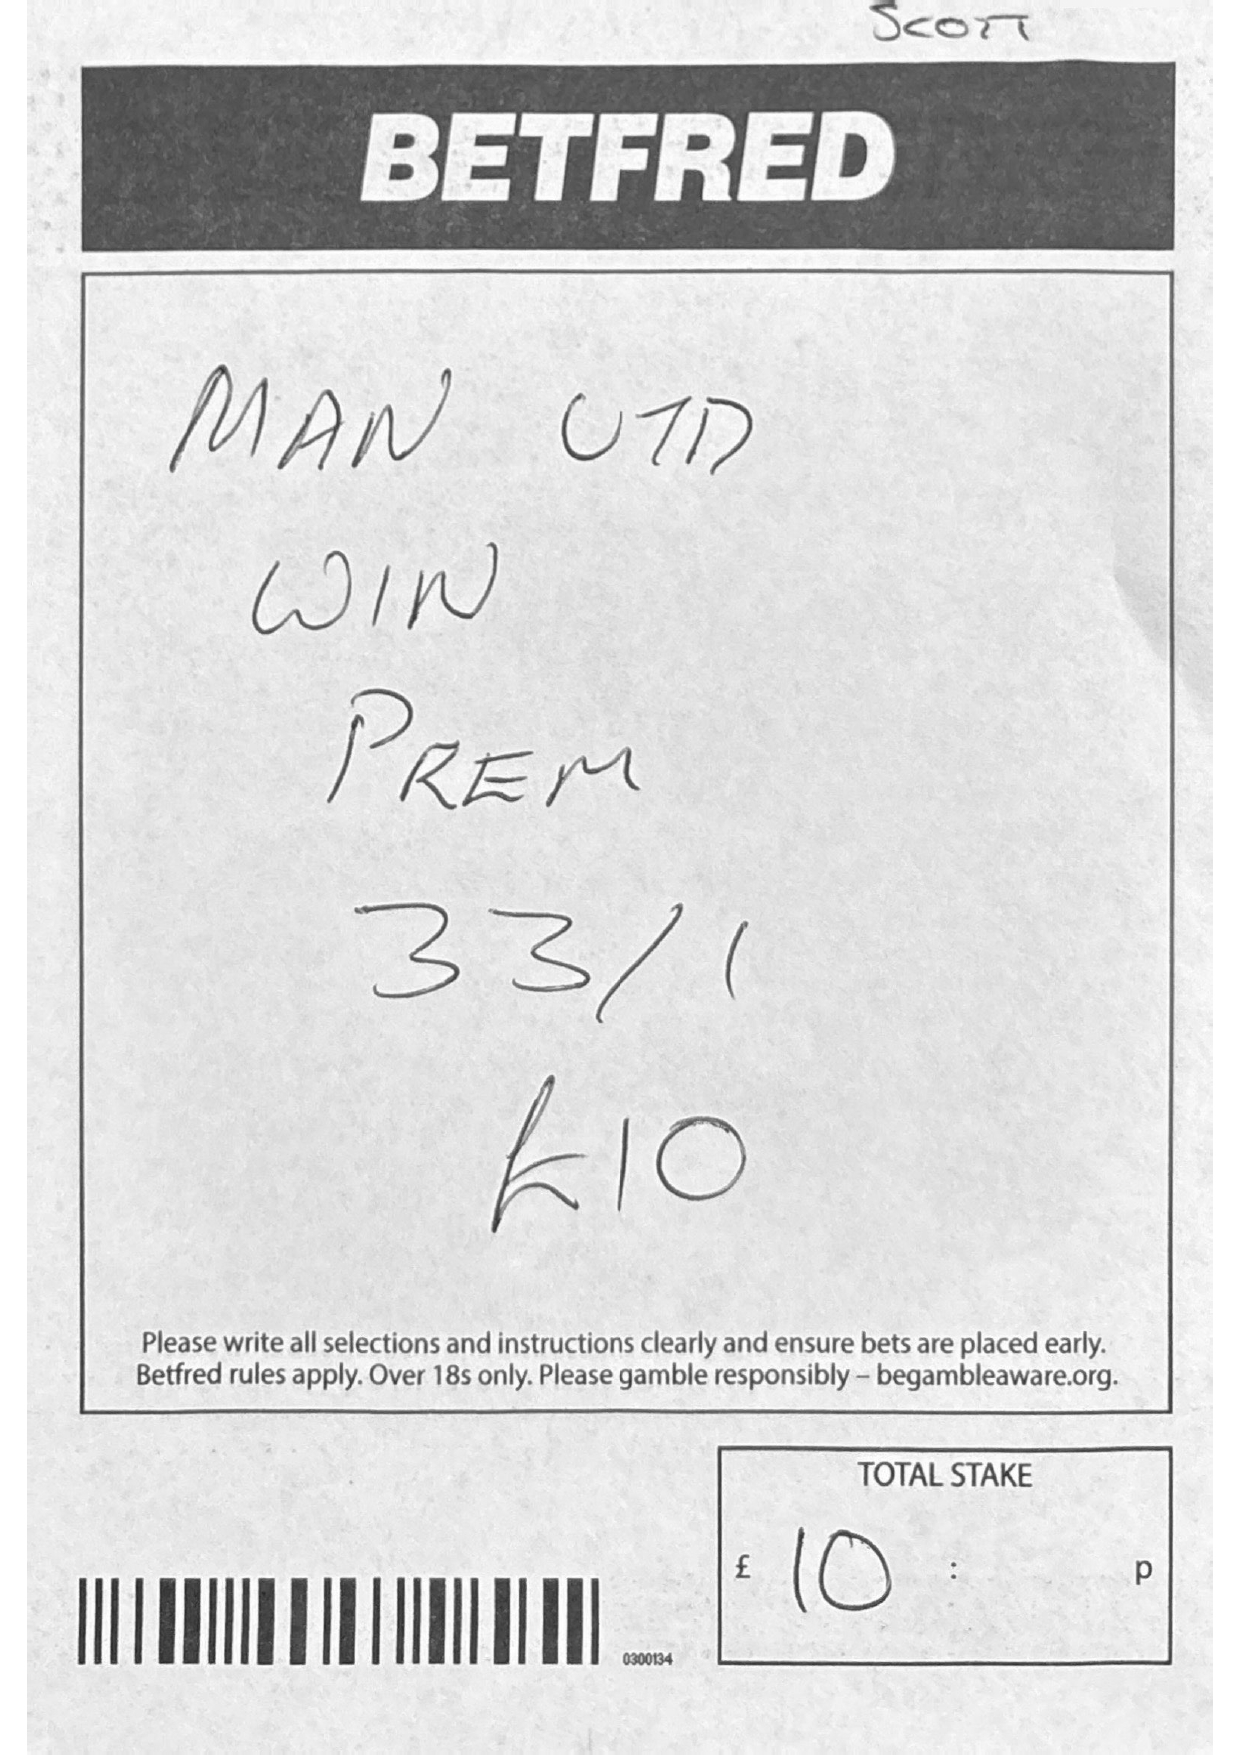 SCOTT
BETFRED
MAN UTD
WIN
PREM
33/1
£10
Please write all selections and instructions clearly and ensure bets are placed early.
Betfred rules apply. Over 18s only. Please gamble responsibly – begambleaware.org.
TOTAL STAKE
£ 10 : p
0300134